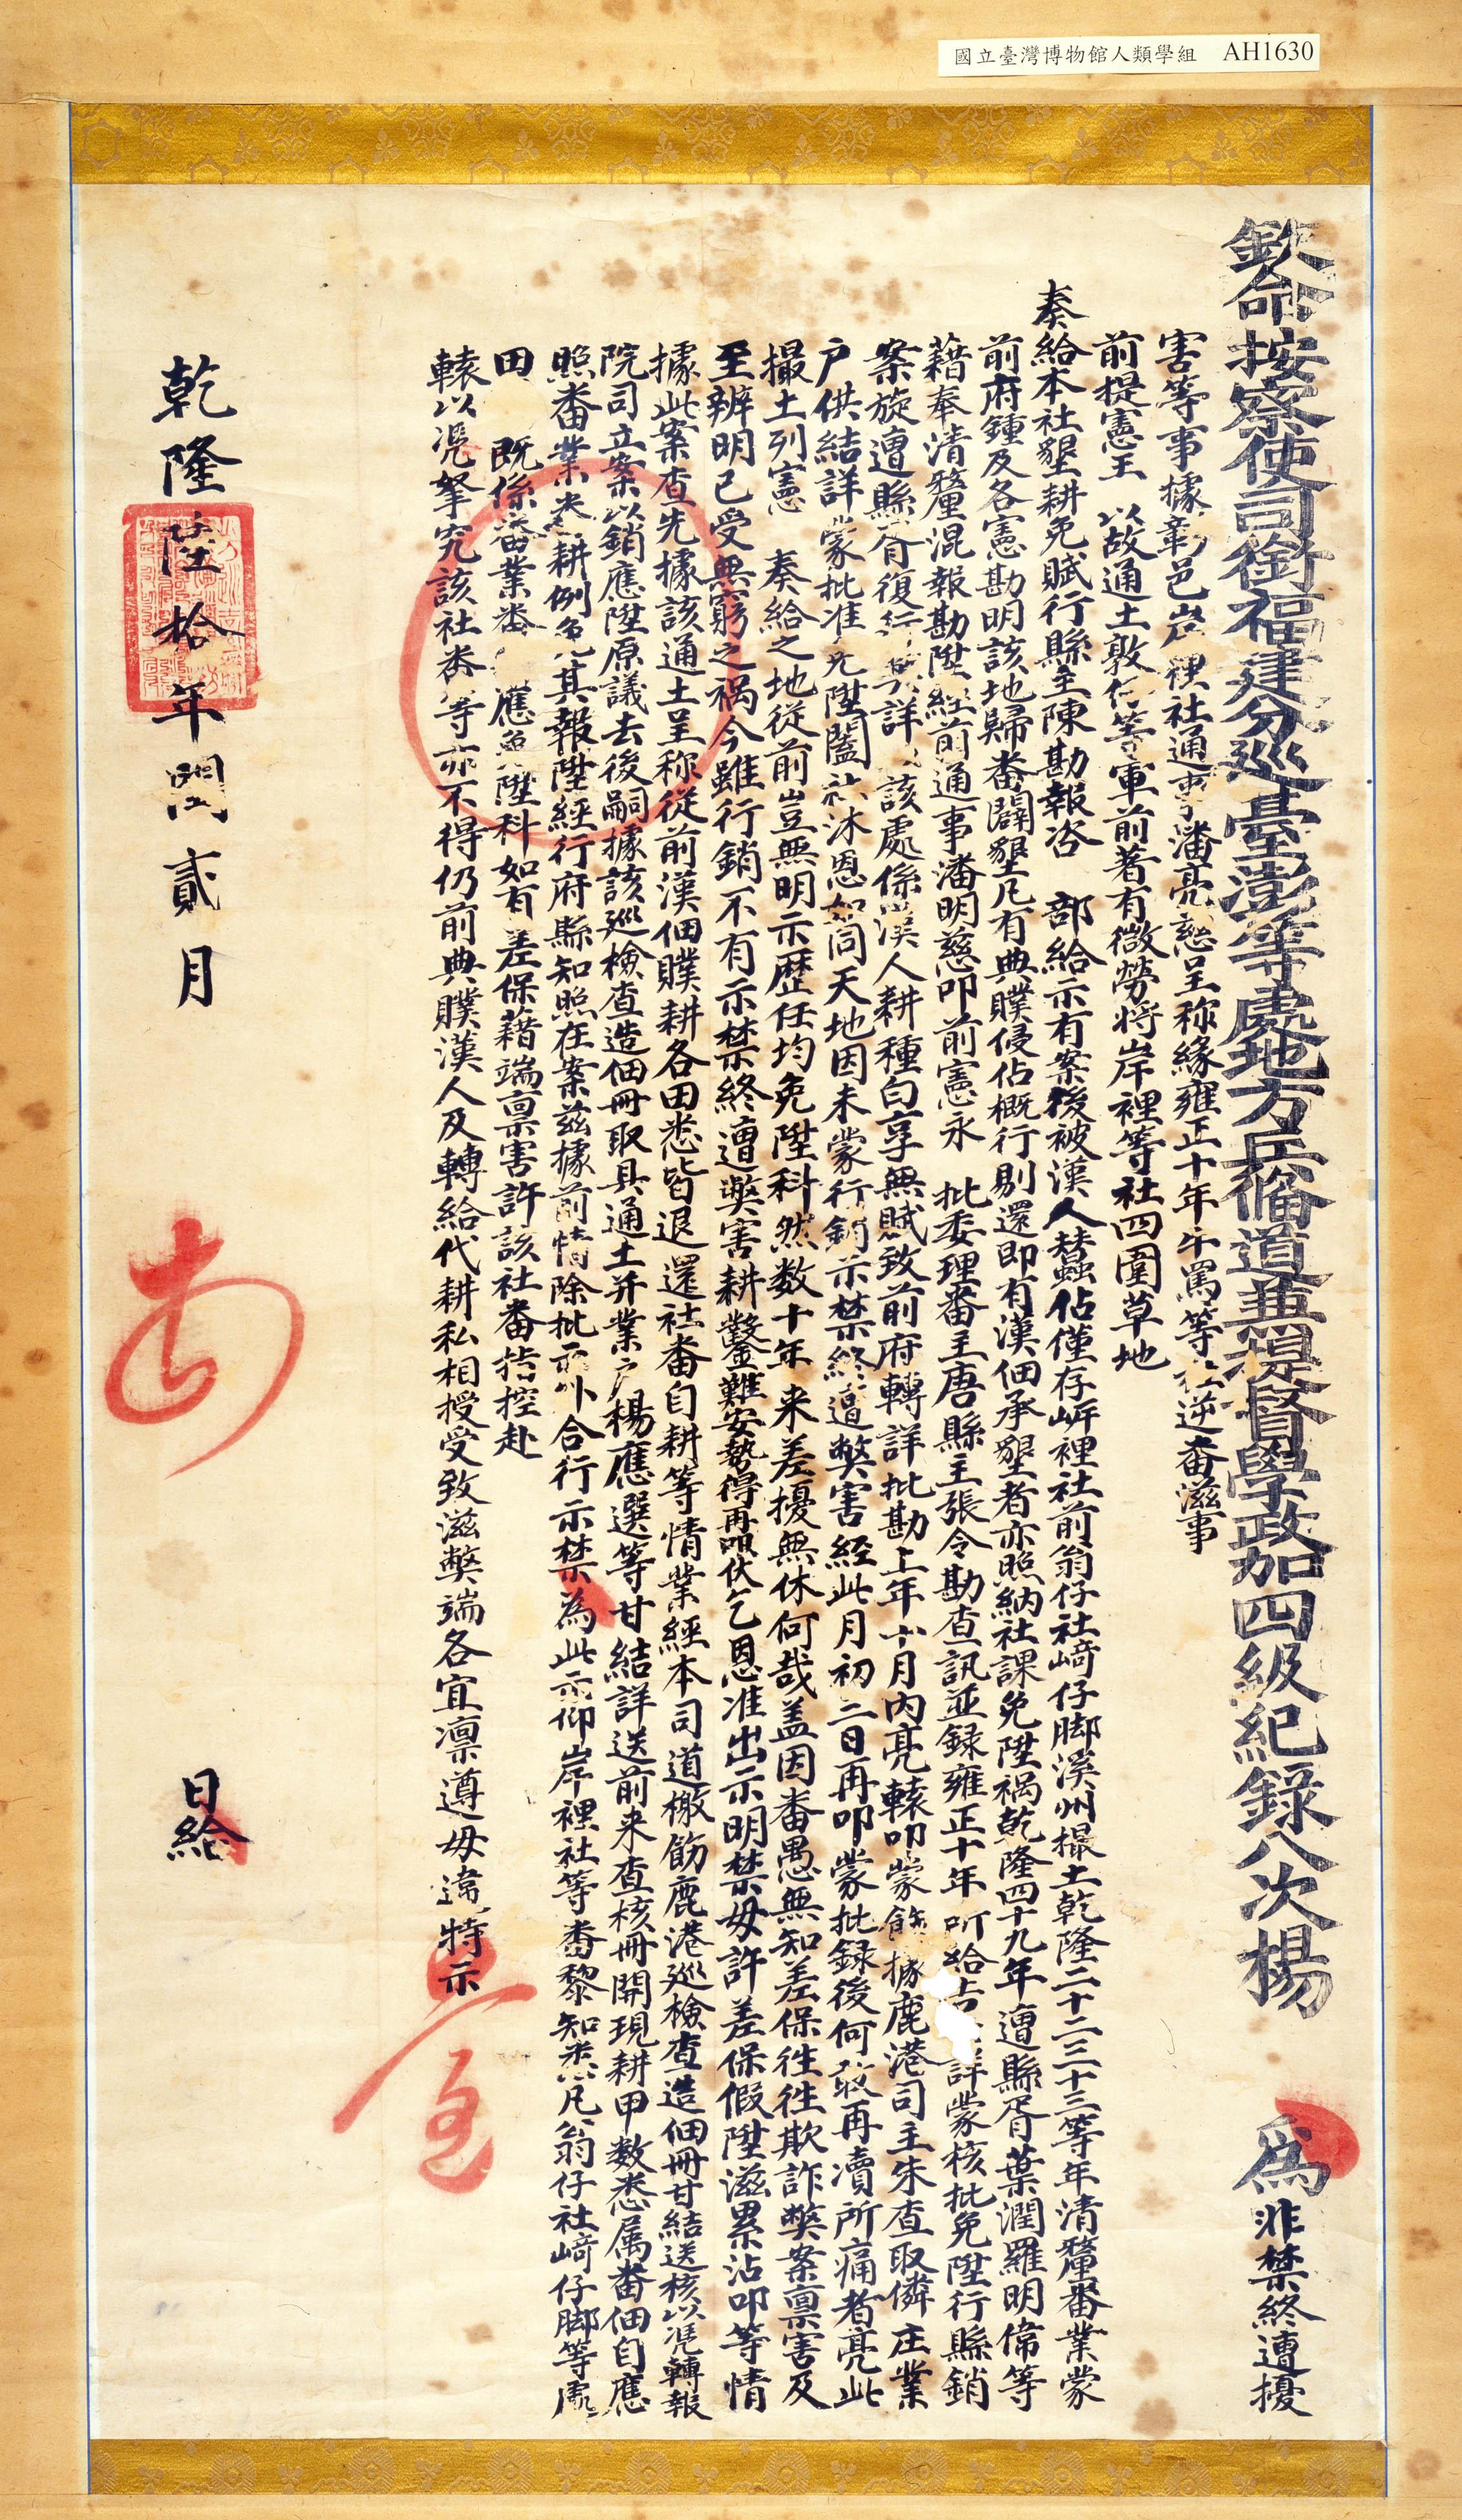 國立臺灣博物館人類學組 AH1630
欽命按察使司銜福建分巡臺澎等處地方兵備道兼提督學政加四級紀錄八次楊 為非禁終遭擾
害等事據彰邑岸裡社通事潘亮慈呈称緣雍正十年牛罵等社逆番滋事
前提憲王 以故通土敦仔等軍前著有微勞將岸裡等社四圍草地
奏給本社墾耕免賦行縣主陳勘報咨 部給示有案後被漢人蠶佔僅存岸裡社前翁仔社﨑仔脚溪州撮土乾隆二十二三十三等年清釐番業蒙
前府鍾及各憲勘明該地歸番闢墾凡有典贌侵佔概行剔還即有漢佃承墾者亦照納社課免陞禍乾隆四十九年遭縣胥葉潤羅明偉等
藉奉清釐混報勘陞經前通事潘明慈叩前憲永 批委理番主唐縣主張令勘查訊並録雍正十年所給告 詳蒙核批免陞行縣銷
案旋遭縣胥復行 詳 該處係漢人耕種白享無賦致前府轉詳批勘上年十月內亮轅叩蒙飭據鹿港司主朱查取憐庄業
户供結詳蒙批准免陞闔社沐恩如同天地因未蒙行銷示禁終遭弊害經此月初二日再叩蒙批録後何敢再瀆所痛者亮此
撮土列憲 奏給之地從前豈無明示歷任均免陞科然数十年来差擾無休何哉盖因番愚無知差保徃徃欺詐弊案禀害及
至辨明已受無窮之禍今雖行銷不有示禁終遭弊害耕鑿難安勢得再呾伏乞恩准出示明禁毋許差保假陞滋累沾叩等情
據此案查先據該通土呈称從前漢佃贌耕各田悉皆退還社番自耕等情業經本司道檄飭鹿港巡檢查造佃冊甘結送核以凴轉報
院司立案以銷應陞原議去後嗣據該巡檢查造佃冊取具通土并業户楊應選等甘結詳送前来查核冊開現耕甲數悉屬番佃自應
照番業番耕例免其報陞經行府縣知照在案兹據前情除批示外合行示禁為此示仰岸裡社等番黎知悉凡翁仔社﨑仔脚等處
田 既係番業番 應免陞科如有差保藉端禀害許該社番指控赴
轅以凴拏究該社番等亦不得仍前典贌漢人及轉給代耕私相授受致滋弊端各宜凜遵毋違特示
乾隆陸拾年閏貳月 日給